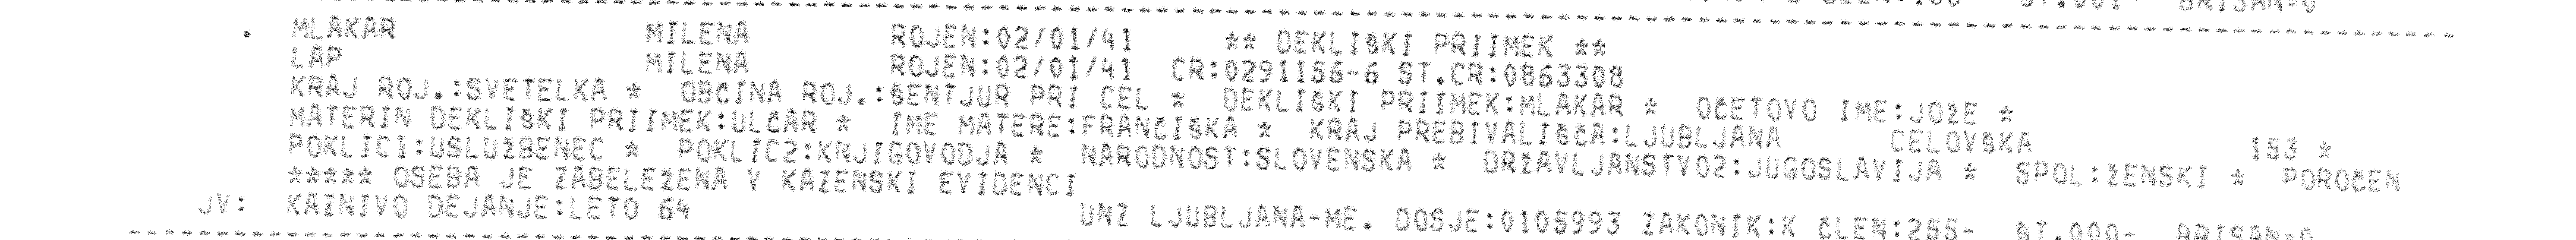 ČLEN:
. MLAKAR MILENA ROJEN:02/01/41 ** DEKLIŠKI PRIIMEK **
LAP MILENA ROJEN:02/01/41 CR:0291156-6 ST.CR:0863308
KRAJ ROJ.:SVETELKA * OBČINA ROJ.:ŠENTJUR PRI CEL * DEKLIŠKI PRIIMEK:MLAKAR * OČETOVO IME:JOŽE *
MATERIN DEKLIŠKI PRIIMEK:ULČAR * IME MATERE:FRANČIŠKA * KRAJ PREBIVALIŠČA:LJUBLJANA CELOVŠKA 153 *
POKLIC1:USLUŽBENEC * POKLIC2:KNJIGOVODJA * NARODNOST:SLOVENSKA * DRŽAVLJANSTVO2:JUGOSLAVIJA * SPOL:ŽENSKI * POROČEN
***** OSEBA JE ZABELEŽENA V KAZENSKI EVIDENCI
JV: KAZNIVO DEJANJE:LETO 64 UNZ LJUBLJANA-ME. DOSJE:0105993 ZAKONIK:K ČLEN:255- ŠT.000- BRISAN=0